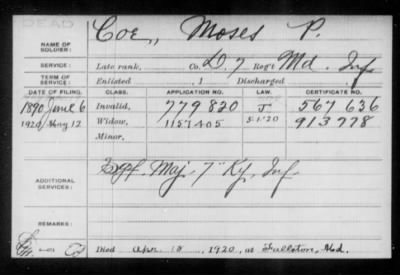 DEAD
Coe, Moses P.
NAME OF SOLDIER:
SERVICE: Late rank, Co. D. 7 Reg't Md. Inf
TERM OF SERVICE: Enlisted 1 Discharged 1
DATE OF FILING. CLASS. APPLICATION NO. LAW. CERTIFICATE NO.
1890 June 6 Invalid, 779820 J 567636
1920 May 12 Widow, 1157405 5-1-20 913778
Minor,
ADDITIONAL SERVICES: Maj. 7" Ky. Inf.
REMARKS:
Died Apr. 1920, at Fullston, Md.